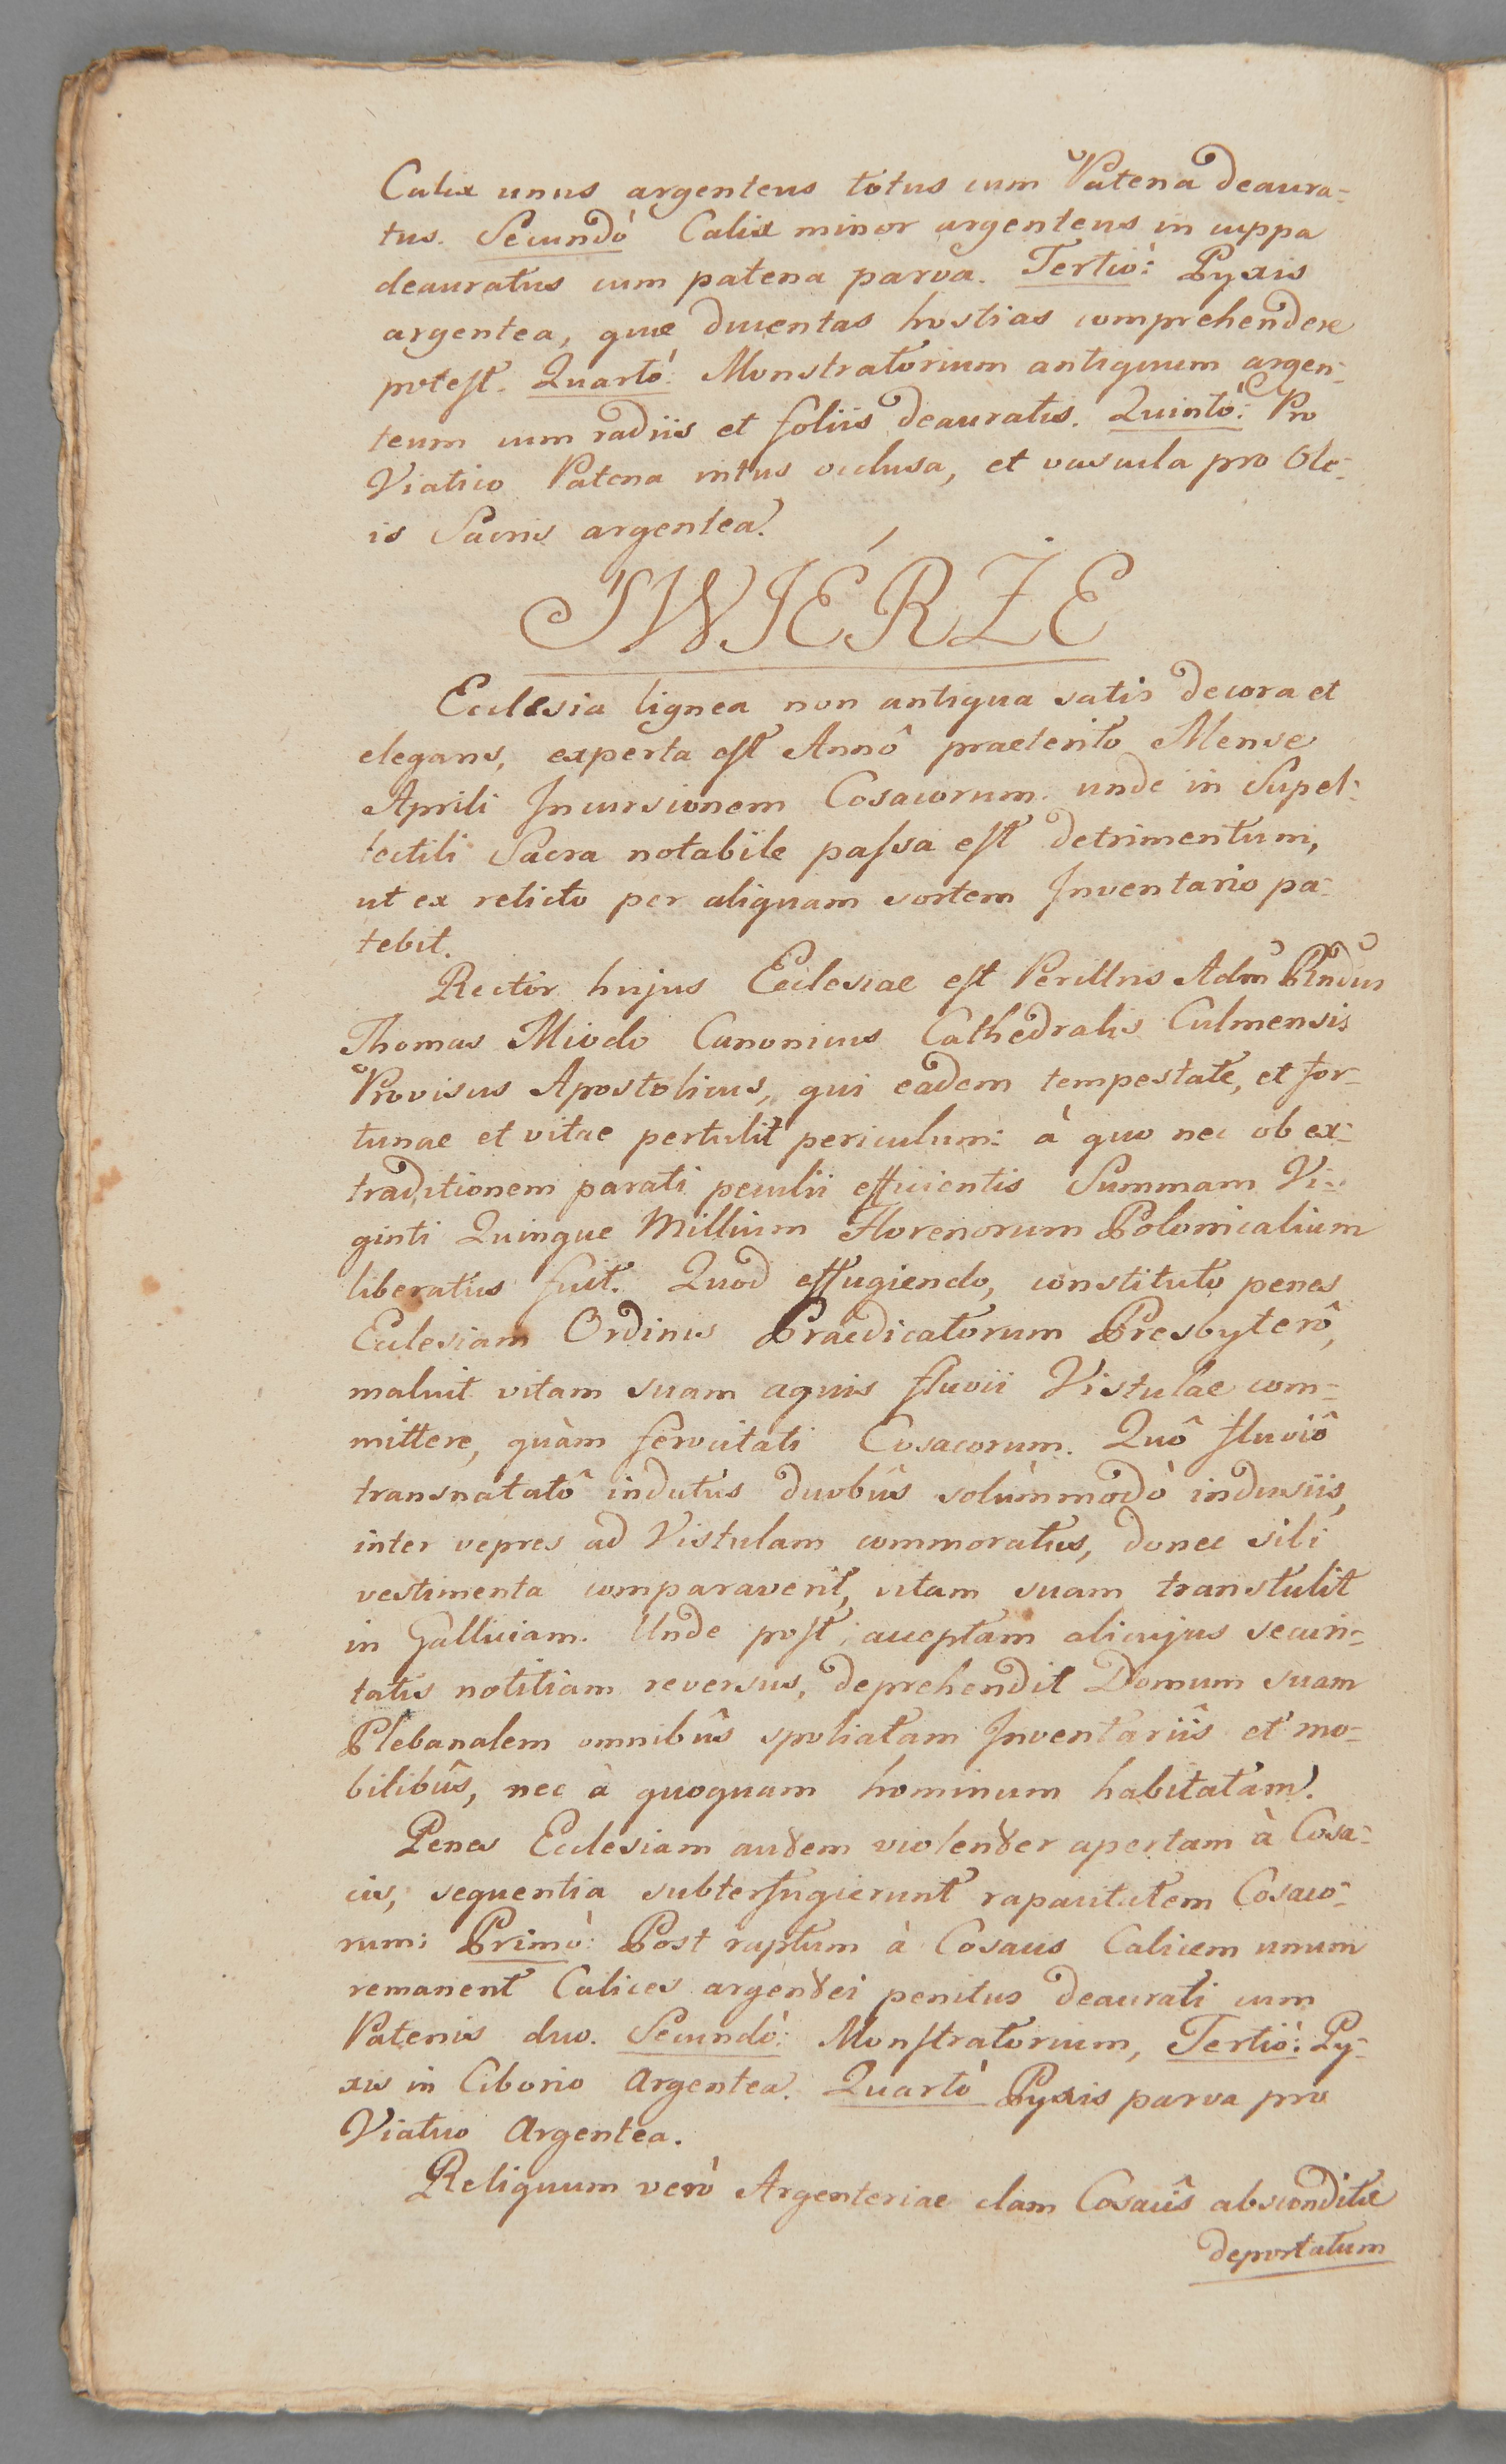 Calix unus argenteus totus cum Patena deaura-
tus. Secundò Calix minor argenteus in cuppa
deauratus cum patena parva. Tertiò: Pyxis
argentea, quae ducentas hostias comprehendere
potest. Quartò: Monstratorium antiquum argen-
teum cum radiis et foliis deauratis. Quintò: Pro
Viatico Patena intus occlusa, et vascula pro Ole-
is Sacris argentea.
SWIÉRŻE
Ecclesia lignea non antiqua satis decora et
elegans, experta est Annô praeterito Mense
Aprili Incursionem Cosacorum. unde in Supel-
lectili Sacra notabile passa est detrimentum,
ut ex relicto per aliquam sortem Inventario pa-
tebit.
Rector hujus Ecclesiae est Perillris Adm Rndus
Thomas Miodo Canonicus Cathedralis Culmensis
Provisus Apostolicus, qui eadem tempestate, et for-
tunae et vitae pertulit periculum: à quo nec ob ex-
traditionem parati peculii efficientis Summam Vi-
ginti Quinque Millium Florenorum Polonicalium
liberatus fuit. Quod effugiendo, constituto penes
Ecclesiam Ordinis Praedicatorum Presbyterô,
maluit vitam suam aquis fluvii Vistulae com-
mittere, quàm ferocitati Cosacorum. Quô fluviô
transnatatô indutus duobûs solùmmodò indusiis,
inter vepres ad Vistulam commoratus, donec sibi
vestimenta comparaverit, vitam suam transtulit
in Galliciam. Unde post acceptam alicujus securi-
tatis notitiam reversus, deprehendit Domum suam
Plebanalem omnibûs spoliatam Inventariîs et mo-
bilibûs, nec à quoquam hominum habitatam.
Penes Ecclesiam autem violenter apertam à Cosa-
cis, sequentia subterfugierunt rapacitatem Cosaco-
rum: Primò: Post raptum à Cosacis Calicem unum
remanent Calices argentei penitus deaurati cum
Patenis duo. Secundò: Monstratorium, Tertiò: Py-
xis in Ciborio Argentea. Quartò Pyxis parva pro
Viatico Argentea.
Reliquum verò Argenteriae clam Cosacîs absconditae
deportatum